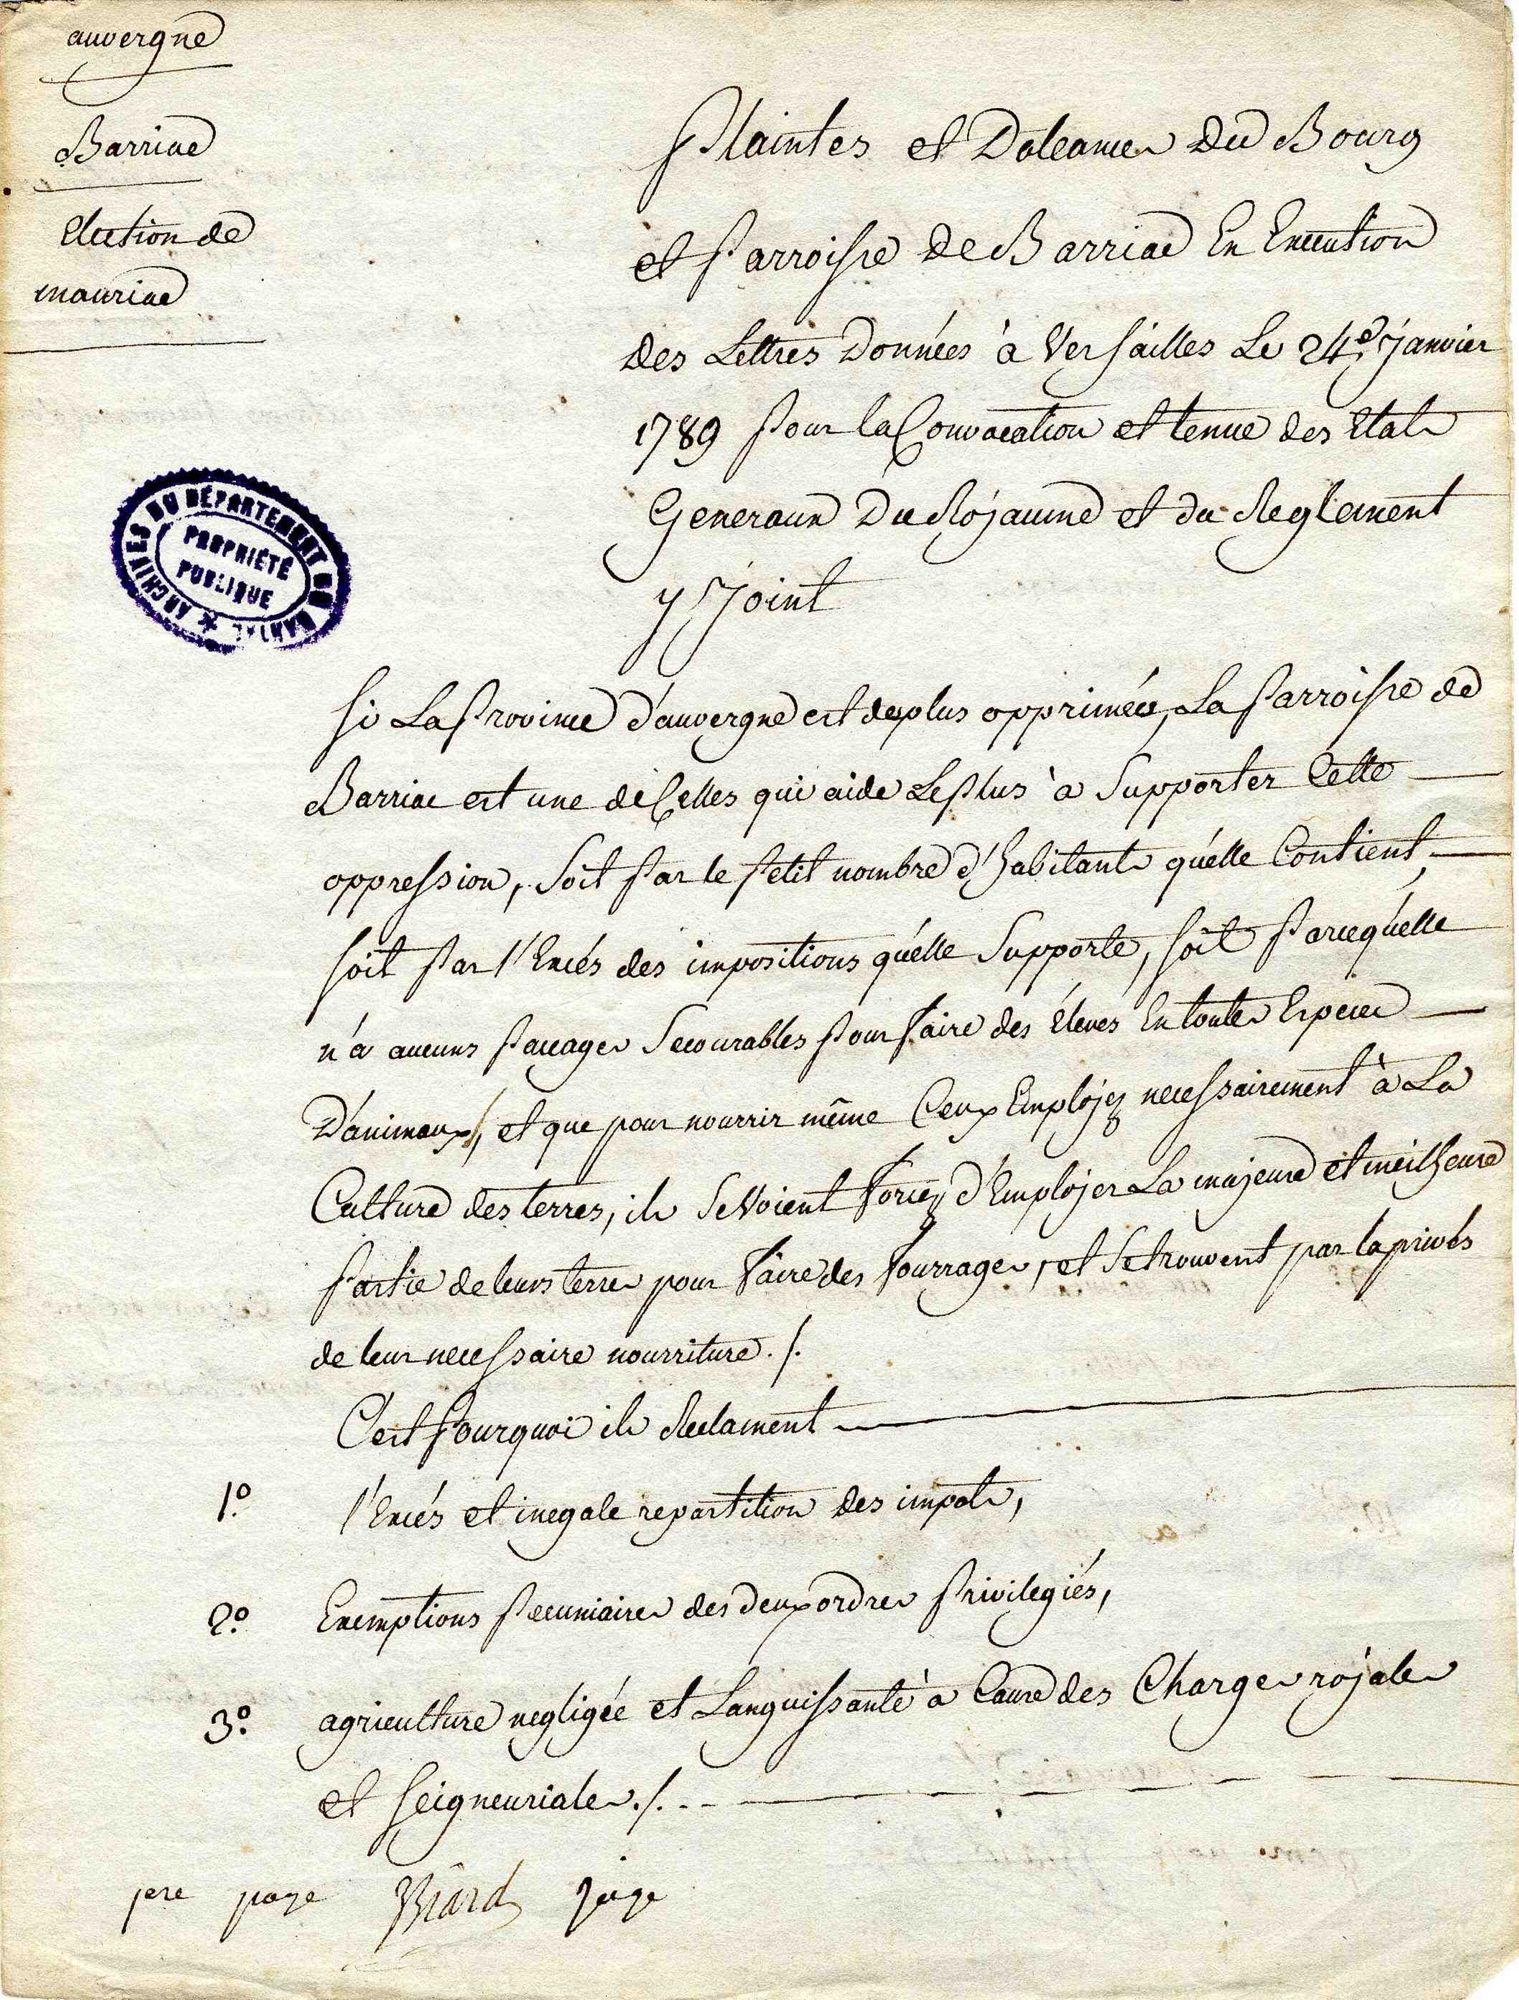 auvergne
Barriac
Election de
mauriac
Plaintes et Doleances Du Bourg
et Parroisse de Barriac En Execution
des Lettres Données à Versailles Le 24e. Janvier
1789 Pour la Convocation et tenue des Etats
Generaux Du Roÿaume et du Reglement
y Joint
ARCHIVES DU DÉPARTEMENT DU CANTAL
PROPRIÉTÉ
PUBLIQUE
Si La Province d'auvergne est des plus opprimée, La Parroisse de
Barriac est une de Celles qui aide Le Plus à Supporter Cette
oppression, Soit Par le Petit nombre d'habitants qu'elle Contient,
Soit Par l'Excés des impositions qu'elle Supporte, Soit Parcequ'elle
n'a aucuns Paccages Secourables Pour Faire des Éleves En toutes Especes
D'animaux, et que pour nourrir même Ceux Emploÿez necessairement à La
Culture des terres, ils Se Voient Forcez d'Emploÿer La majeure et meilheure
Partie de leurs terres pour Faire des Fourrages, et Se trouvent par la privés
de leur necessaire nourriture ./.
C'est Pourquoi ils Reclament
1o. l'Excés et inegale repartition des impots,
2o. Exemptions Pecuniaires des deux ordres Privilegiés,
3o. agriculture negligée et Languissante à Cause des Charges roÿales
et Seigneuriales ./.
1ere page Biard juge